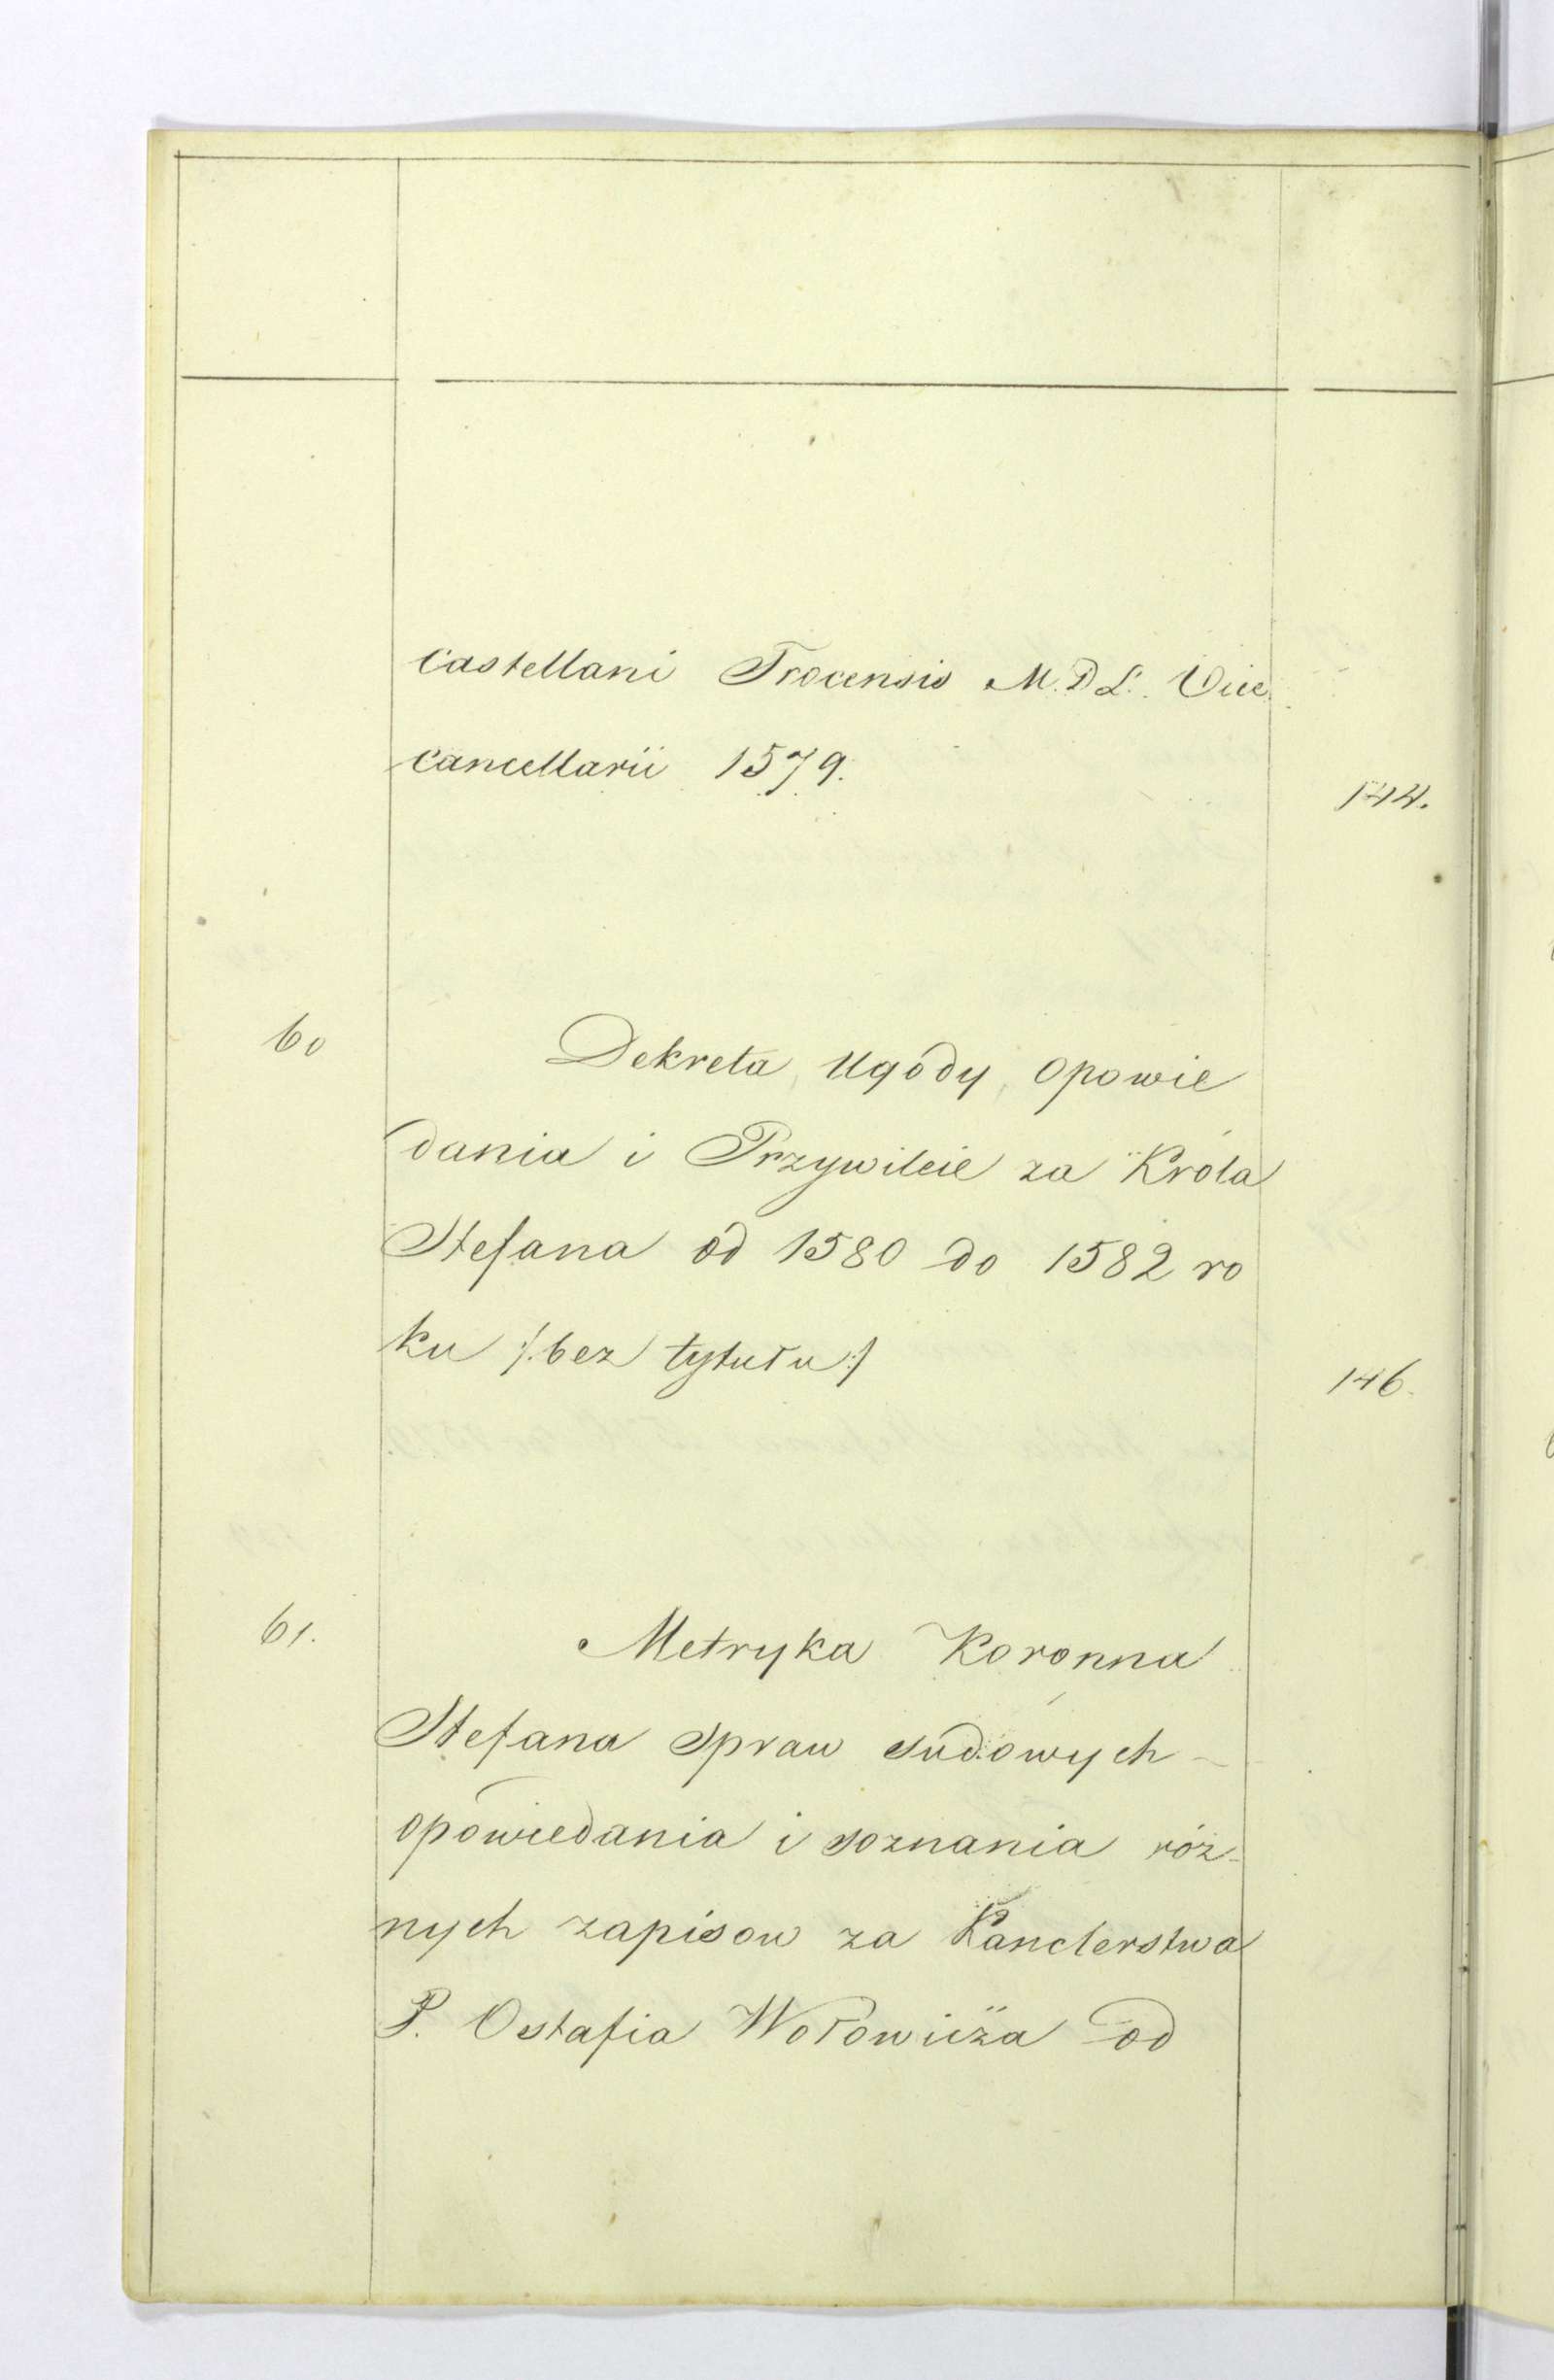 Castellani Trocensis M. D L. Vice
Cancellarii 1579.
144.
60
Dekreta, Ugody, Opowie
dania i Przywileie za Króla
Stefana od 1580 do 1582 ro
ku /:bez tytułu:/
146.
61.
Metryka Koronna
Stefana Spraw sudowych
opowiedania i soznania róż-
nych zapisow za Kanclerstwa
P. Ostafia Wołowicza od